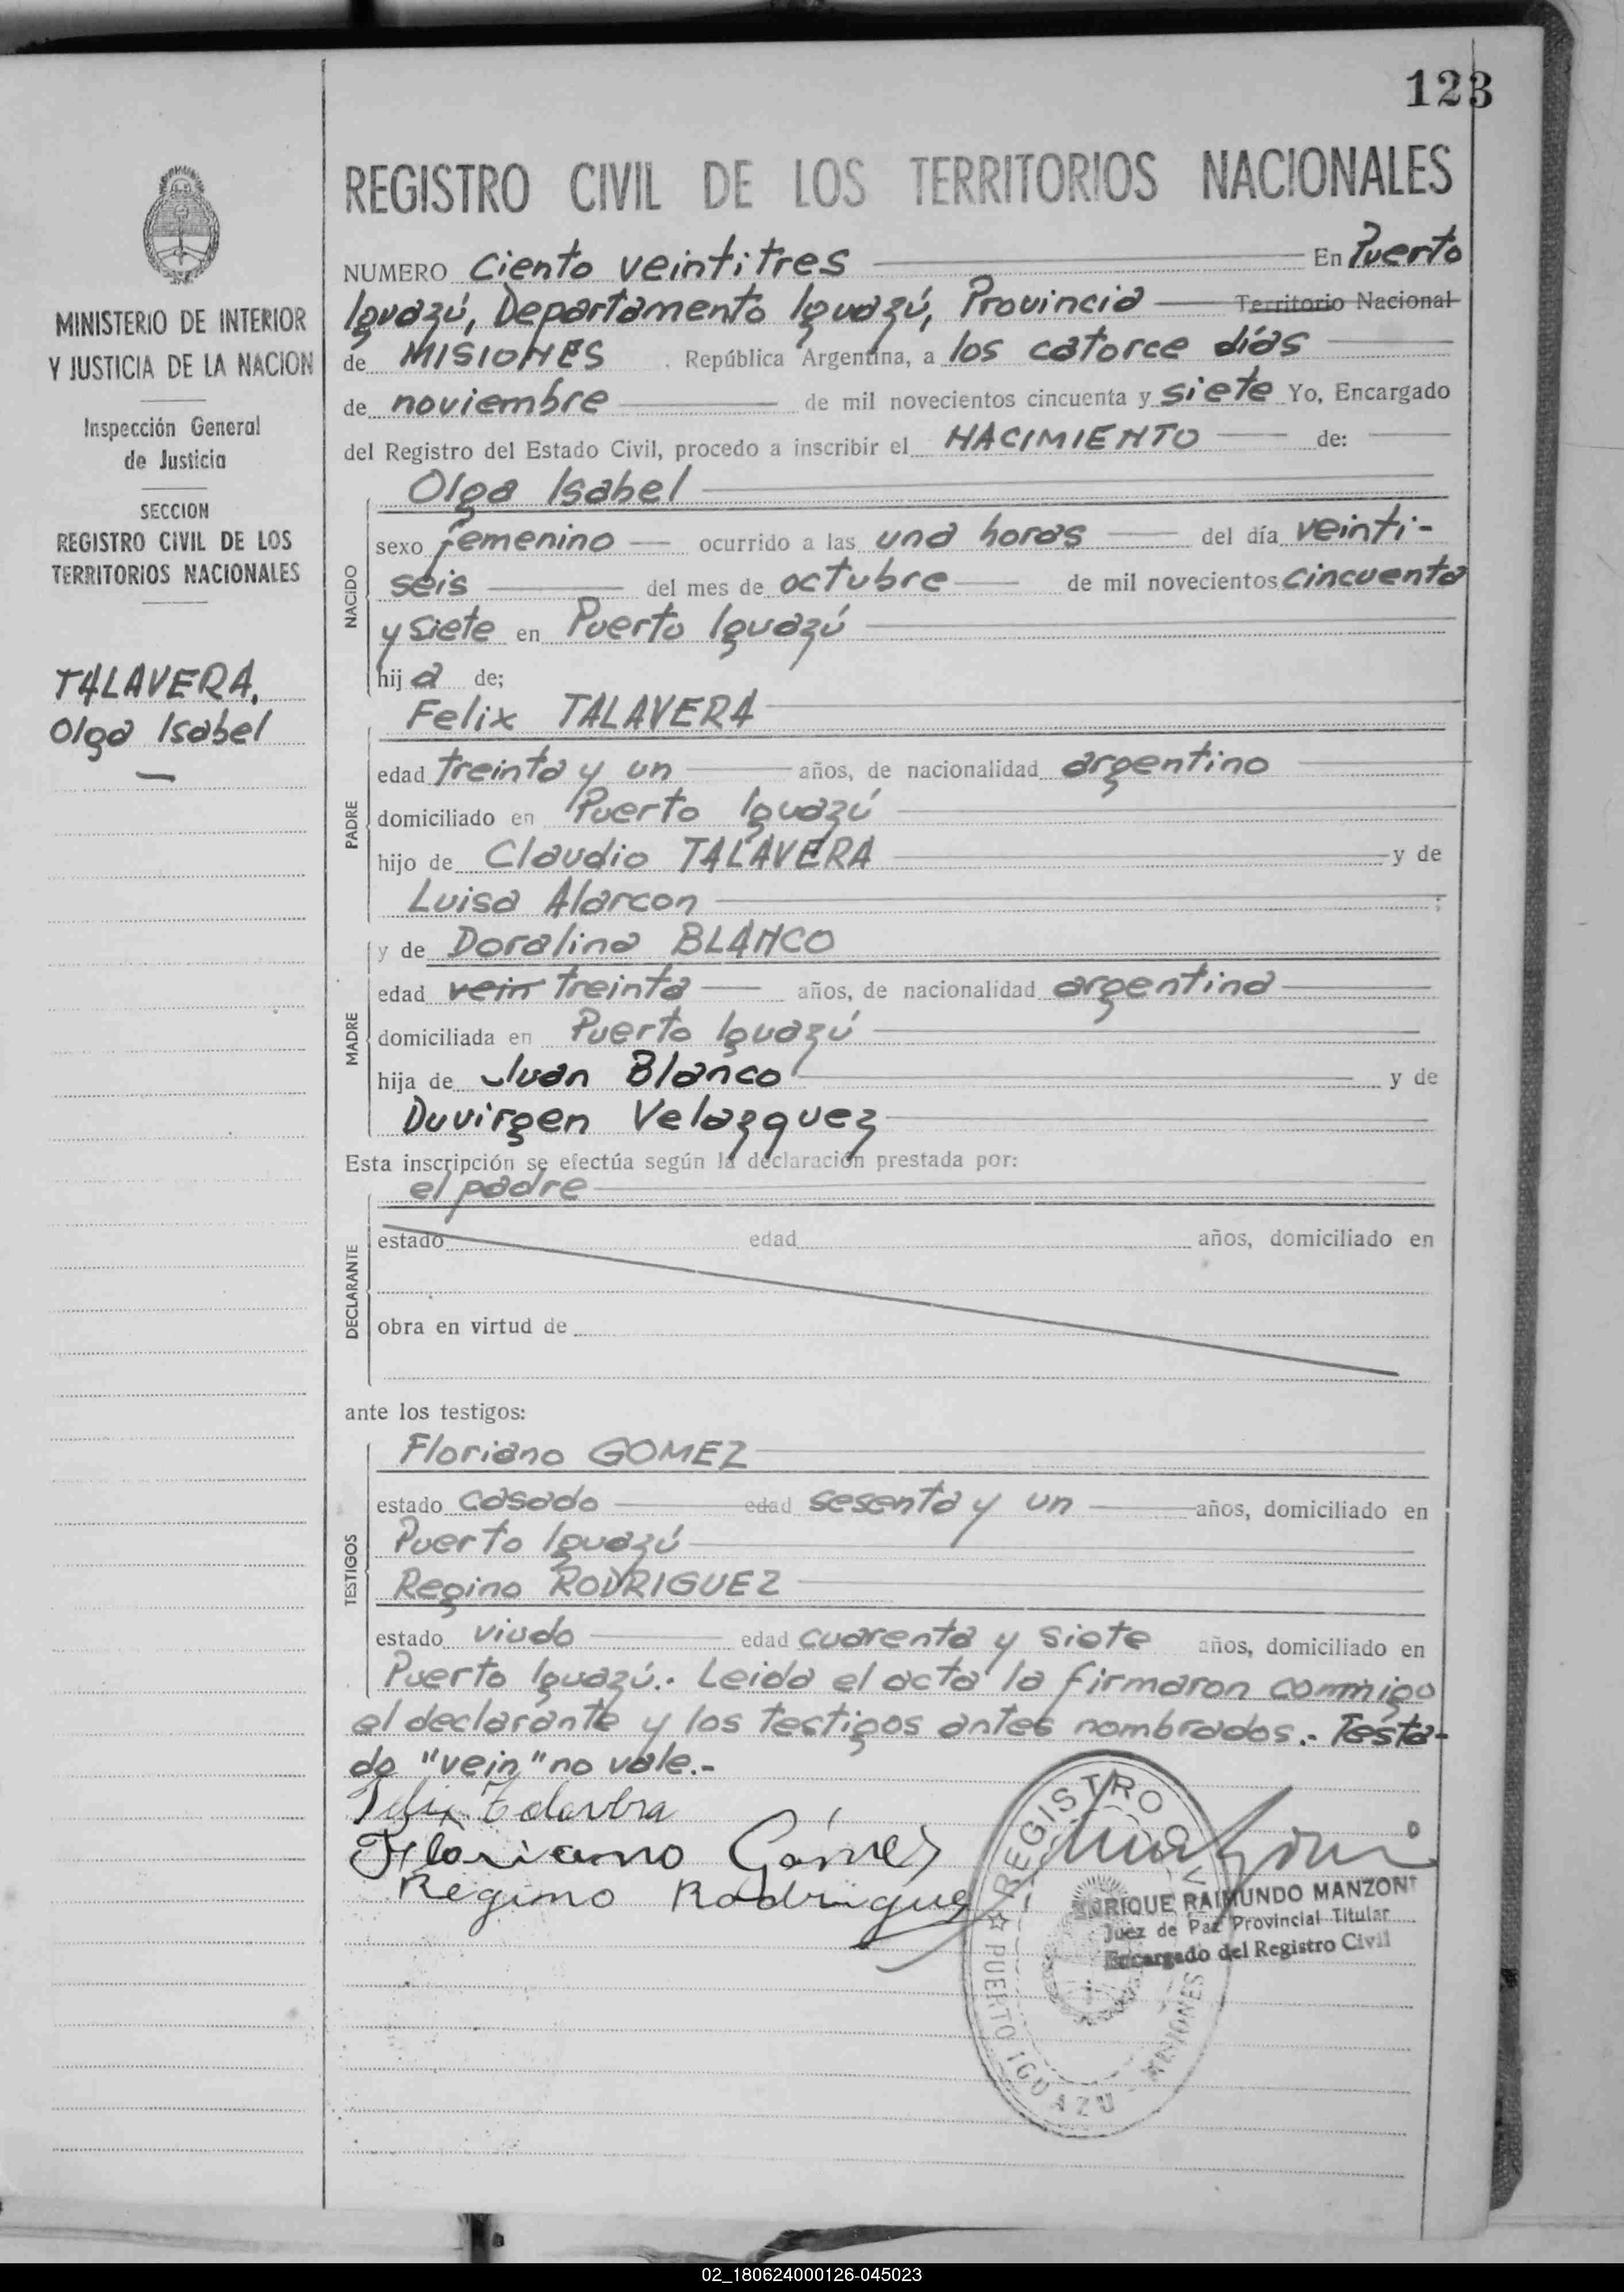 123
REGISTRO CIVIL DE LOS TERRITORIOS NACIONALES
MINISTERIO DE INTERIOR
Y JUSTICIA DE LA NACION
Inspección General
de Justicia
SECCION
REGISTRO CIVIL DE LOS
TERRITORIOS NACIONALES
TALAVERA,
Olga Isabel
NUMERO Ciento veintitres En Puerto
Iguazú, Departamento Iguazú, Provincia Territorio Nacional
de MISIONES . República Argentina, a los catorce días
de noviembre de mil novecientos cincuenta y siete Yo, Encargado
del Registro del Estado Civil, procedo a inscribir el NACIMIENTO de:
NACIDO
Olga Isabel
sexo femenino ocurrido a las una horas del día veinti-
seis del mes de octubre de mil novecientos cincuenta
y siete en Puerto Iguazú
hij a de;
PADRE
Felix TALAVERA
edad treinta y un años, de nacionalidad argentino
domiciliado en Puerto Iguazú
hijo de Claudio TALAVERA y de
Luisa Alarcon ;
MADRE
y de Doralina BLANCO
edad vein treinta años, de nacionalidad argentina
domiciliada en Puerto Iguazú
hija de Juan Blanco y de
Duvirgen Velazquez
Esta inscripción se efectúa según la declaración prestada por:
DECLARANTE
el padre
estado edad años, domiciliado en
obra en virtud de
ante los testigos:
TESTIGOS
Floriano GOMEZ
estado casado edad sesenta y un años, domiciliado en
Puerto Iguazú
Regino RODRIGUEZ
estado viudo edad cuarenta y siete años, domiciliado en
Puerto Iguazú.- Leida el acta la firmaron conmigo
el declarante y los testigos antes nombrados.- Testa-
do "vein" no vale.-
Felix Talavera
Floriano Gómez
Regino Rodriguez
Manzoni
REGISTRO CIVIL
PUERTO IGUAZU MISIONES
ENRIQUE RAIMUNDO MANZONI
Juez de Paz Provincial Titular
Encargado del Registro Civil
02_180624000126-045023